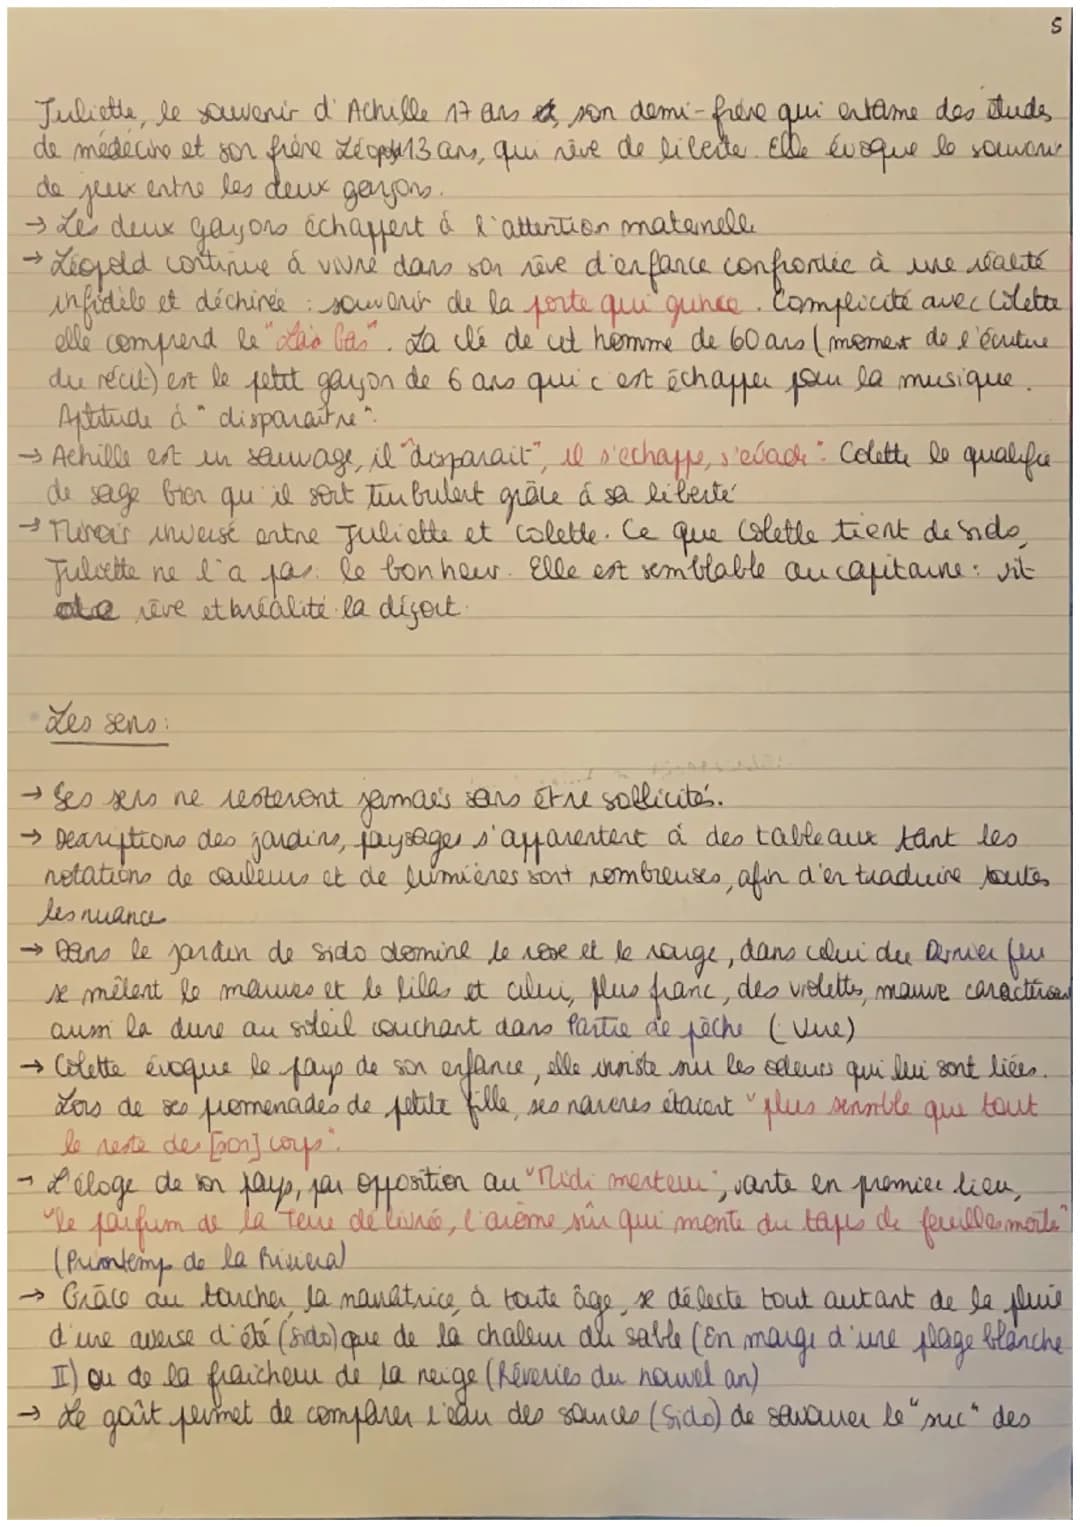 5
Juliette, le souvenir d'Achille 17 ans et, son demi-frère qui entame des études
de médécine et son frère Léopold 13 ans, qui rêve de liberté. Elle évoque le souvenir
de jeux entre les deux garçons.
→ Les deux garçons échappent à l'attention maternelle
→ Léopold continue à vivre dans son rêve d'enfance confrontée à une réalité
infidèle et déchirée : souvenir de la porte qui grince. Complicité avec Colette
elle comprend le "Là bas". La clé de cet homme de 60 ans (moment de l'écriture
du récit) est le petit garçon de 6 ans qui c'est échapper pour la musique.
Aptitude à "disparaître".
→ Achille est un sauvage, il "disparait", il s'echappe, s'évade". Colette le qualifie
de sage bien qu'il soit turbulent grâce à sa liberté
→ Miroir inversé entre Juliette et Colette. Ce que Colette tient de Sido,
Juliette ne l'a pas. le bonheur. Elle est semblable au capitaine : vit
rêve et la réalité la déçoit.
Les sens :
→ Ses sens ne resteront jamais sans être sollicités.
→ Descriptions des jardins, paysages s'apparentent à des tableaux tant les
notations de couleurs et de lumières sont nombreuses, afin d'en traduire toutes
les nuances
→ Dans le jardin de Sido domine le rose et le rouge, dans celui du Dernier feu
se mêlent le mauves et le lilas et celui, plus franc, des violettes, mauve caractérisent
aussi la dune au soleil couchant dans Partie de pêche (Vue)
→ Colette évoque le pays de son enfance, elle insiste sur les odeurs qui lui sont liées.
Lors de ses promenades de petite fille, ses narines étaient "plus sensible que tout
le reste de [son] corps".
→ L'éloge de son pays, par opposition au "Midi menteur", vante en premier lieu,
"le parfum de la terre délivrée, l'arôme sûr qui monte du tapis de feuilles morte"
(Printemps de la Riviera)
→ Grâce au toucher, la narratrice, à toute âge, se délecte tout autant de la pluie
d'une averse d'été (Sido) que de la chaleur du sable (En marge d'une plage blanche
II) ou de la fraîcheur de la neige (Rêveries du nouvel an)
→ Le goût permet de comparer l'eau des sources (Sido) de savourer le "suc" des